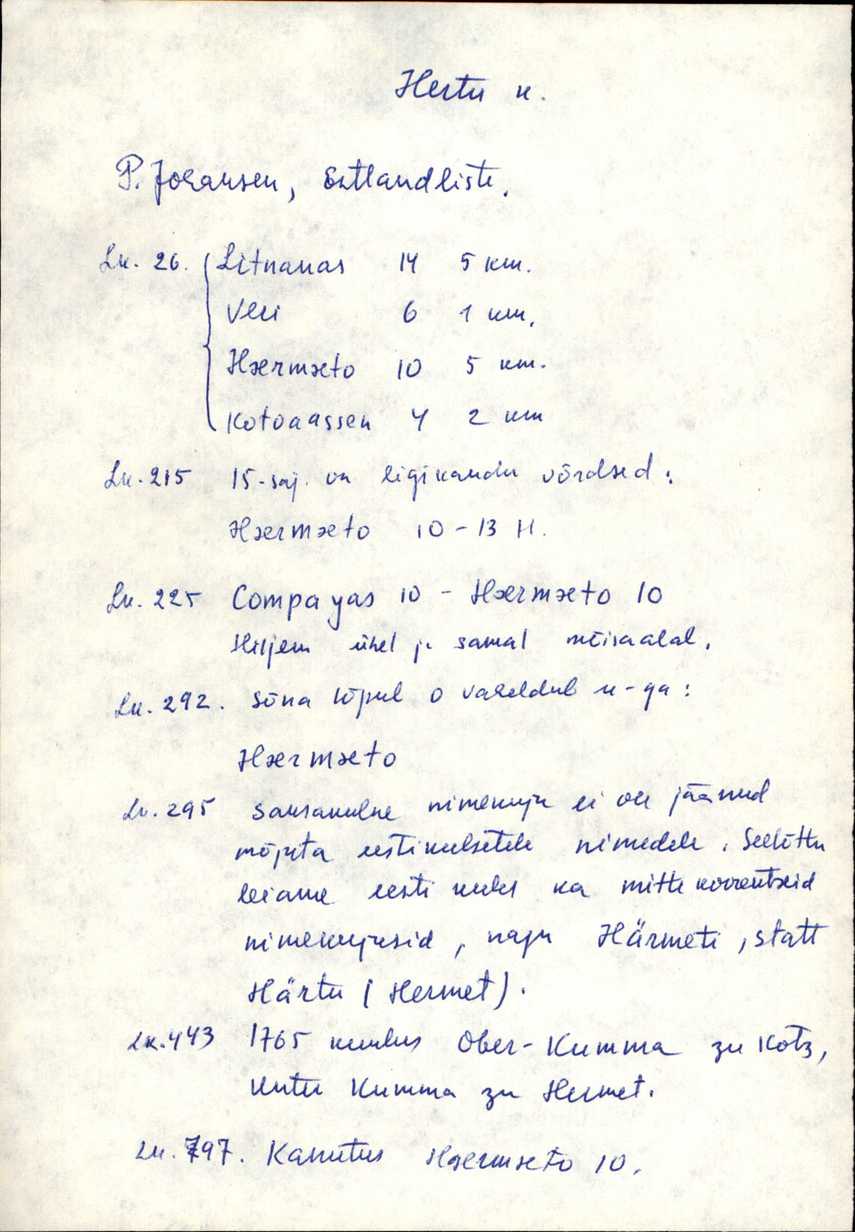 Hertu k.
P. Johansen, Estlandliste.
Lk. 26. Litnanas 14 5 km.
Veri 6 1 km.
Hærmæto 10 5 km.
Kotoaassen 4 2 km
Lk. 215 15-saj. on ligikaudu võrdsed:
Hærmæto 10 – 13 H.
Lk. 225 Compayas 10 – Hærmæto 10
Hiljem ühel ja samal mõisaalal.
Lk. 292. Sõna lõpul o vaheldub u-ga:
Hærmæto
Lk. 295 Saksakulne nimekuju ei ole jäänud
mõjuta eestikeelsetele nimedele. Seetõttu
leiame eesti keeles ka mitte korrentseid
nimekujusid, nagu Härmeti, statt
Härtu (Hermet).
Lk. 443 1765 kuulus Ober-Kumma zu Kotz,
Unter Kumma zu Hermet.
Lk. 797. Kanutus Hærmæto 10.